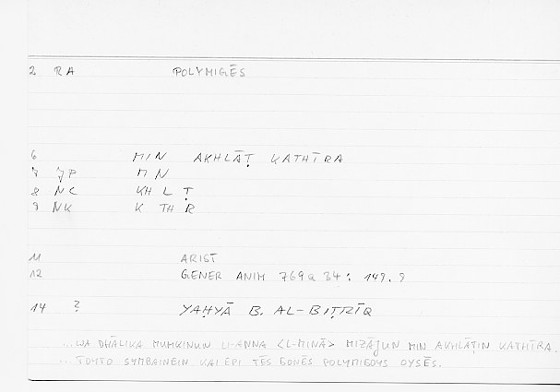 2 RA POLYMIGĒS
6 MIN AKHLĀṬ KATHĪRA
7 JP MN
8 NC KH L Ṭ
9 NK K TH R
11 ARIST
12 GENER ANIM 769a 34 : 149.9
14 ? YAḤYĀ B. AL-BIṬRĪQ
...WA DHĀLIKA MUMKINUN LI-ANNA <L-MINĀ> MIZĀJUN MIN AKHLĀṬIN KATHĪRA.
... TOYTO SYMBAINEIN KAI EPI TĒS GONĒS POLYMIGOYS OYSĒS.